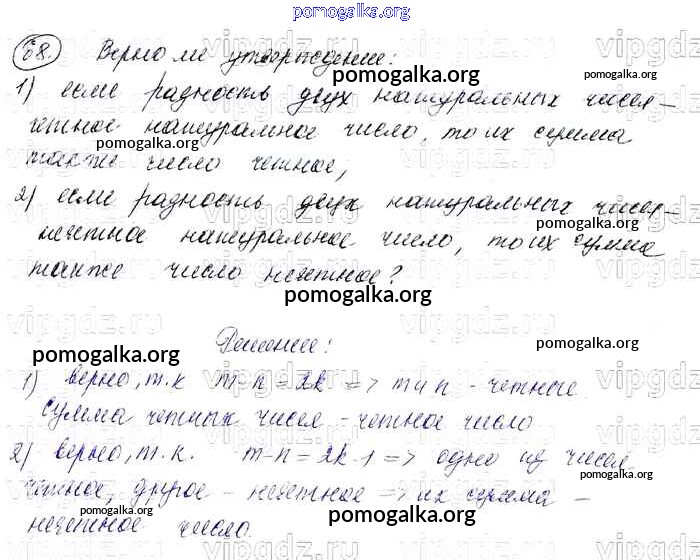 pomogalka.org
68. Верно ли утверждение:
pomogalka.org
pomogalka.org
1) если разность двух натуральных чисел –
четное натуральное число, то их сумма
pomogalka.org
pomogalka.org
также число четное;
2) если разность двух натуральных чисел –
pomogalka.org
нечетное натуральное число, то их сумма
pomogalka.org
также число нечетное?
pomogalka.org
Решение:
pomogalka.org
pomogalka.org
1) верно, т.к m-n=2k => m и n - четные
pomogalka.org
сумма четных чисел – четное число
2) верно, т.к. m-n=2k-1 => одно из чисел
pomogalka.org
pomogalka.org
четное, другое – нечетное => их сумма –
pomogalka.org
нечетное число.
pomogalka.org
vipgdz.ru